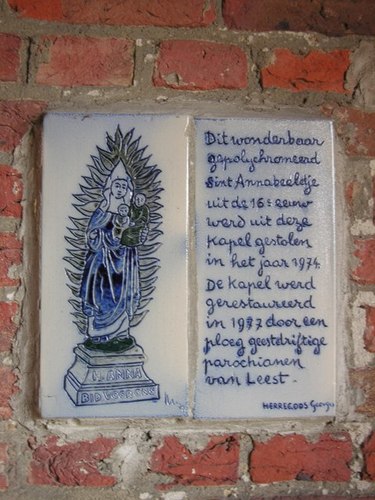 H. ANNA
BID VOOR ONS
Dit wonderbaar
gepolychromeerd
Sint Annabeeldje
uit de 16e eeuw
werd uit deze
kapel gestolen
in het jaar 1974.
De kapel werd
gerestaureerd
in 1977 door een
ploeg geestdriftige
parochianen
van Leest.
HERREGODS Georges